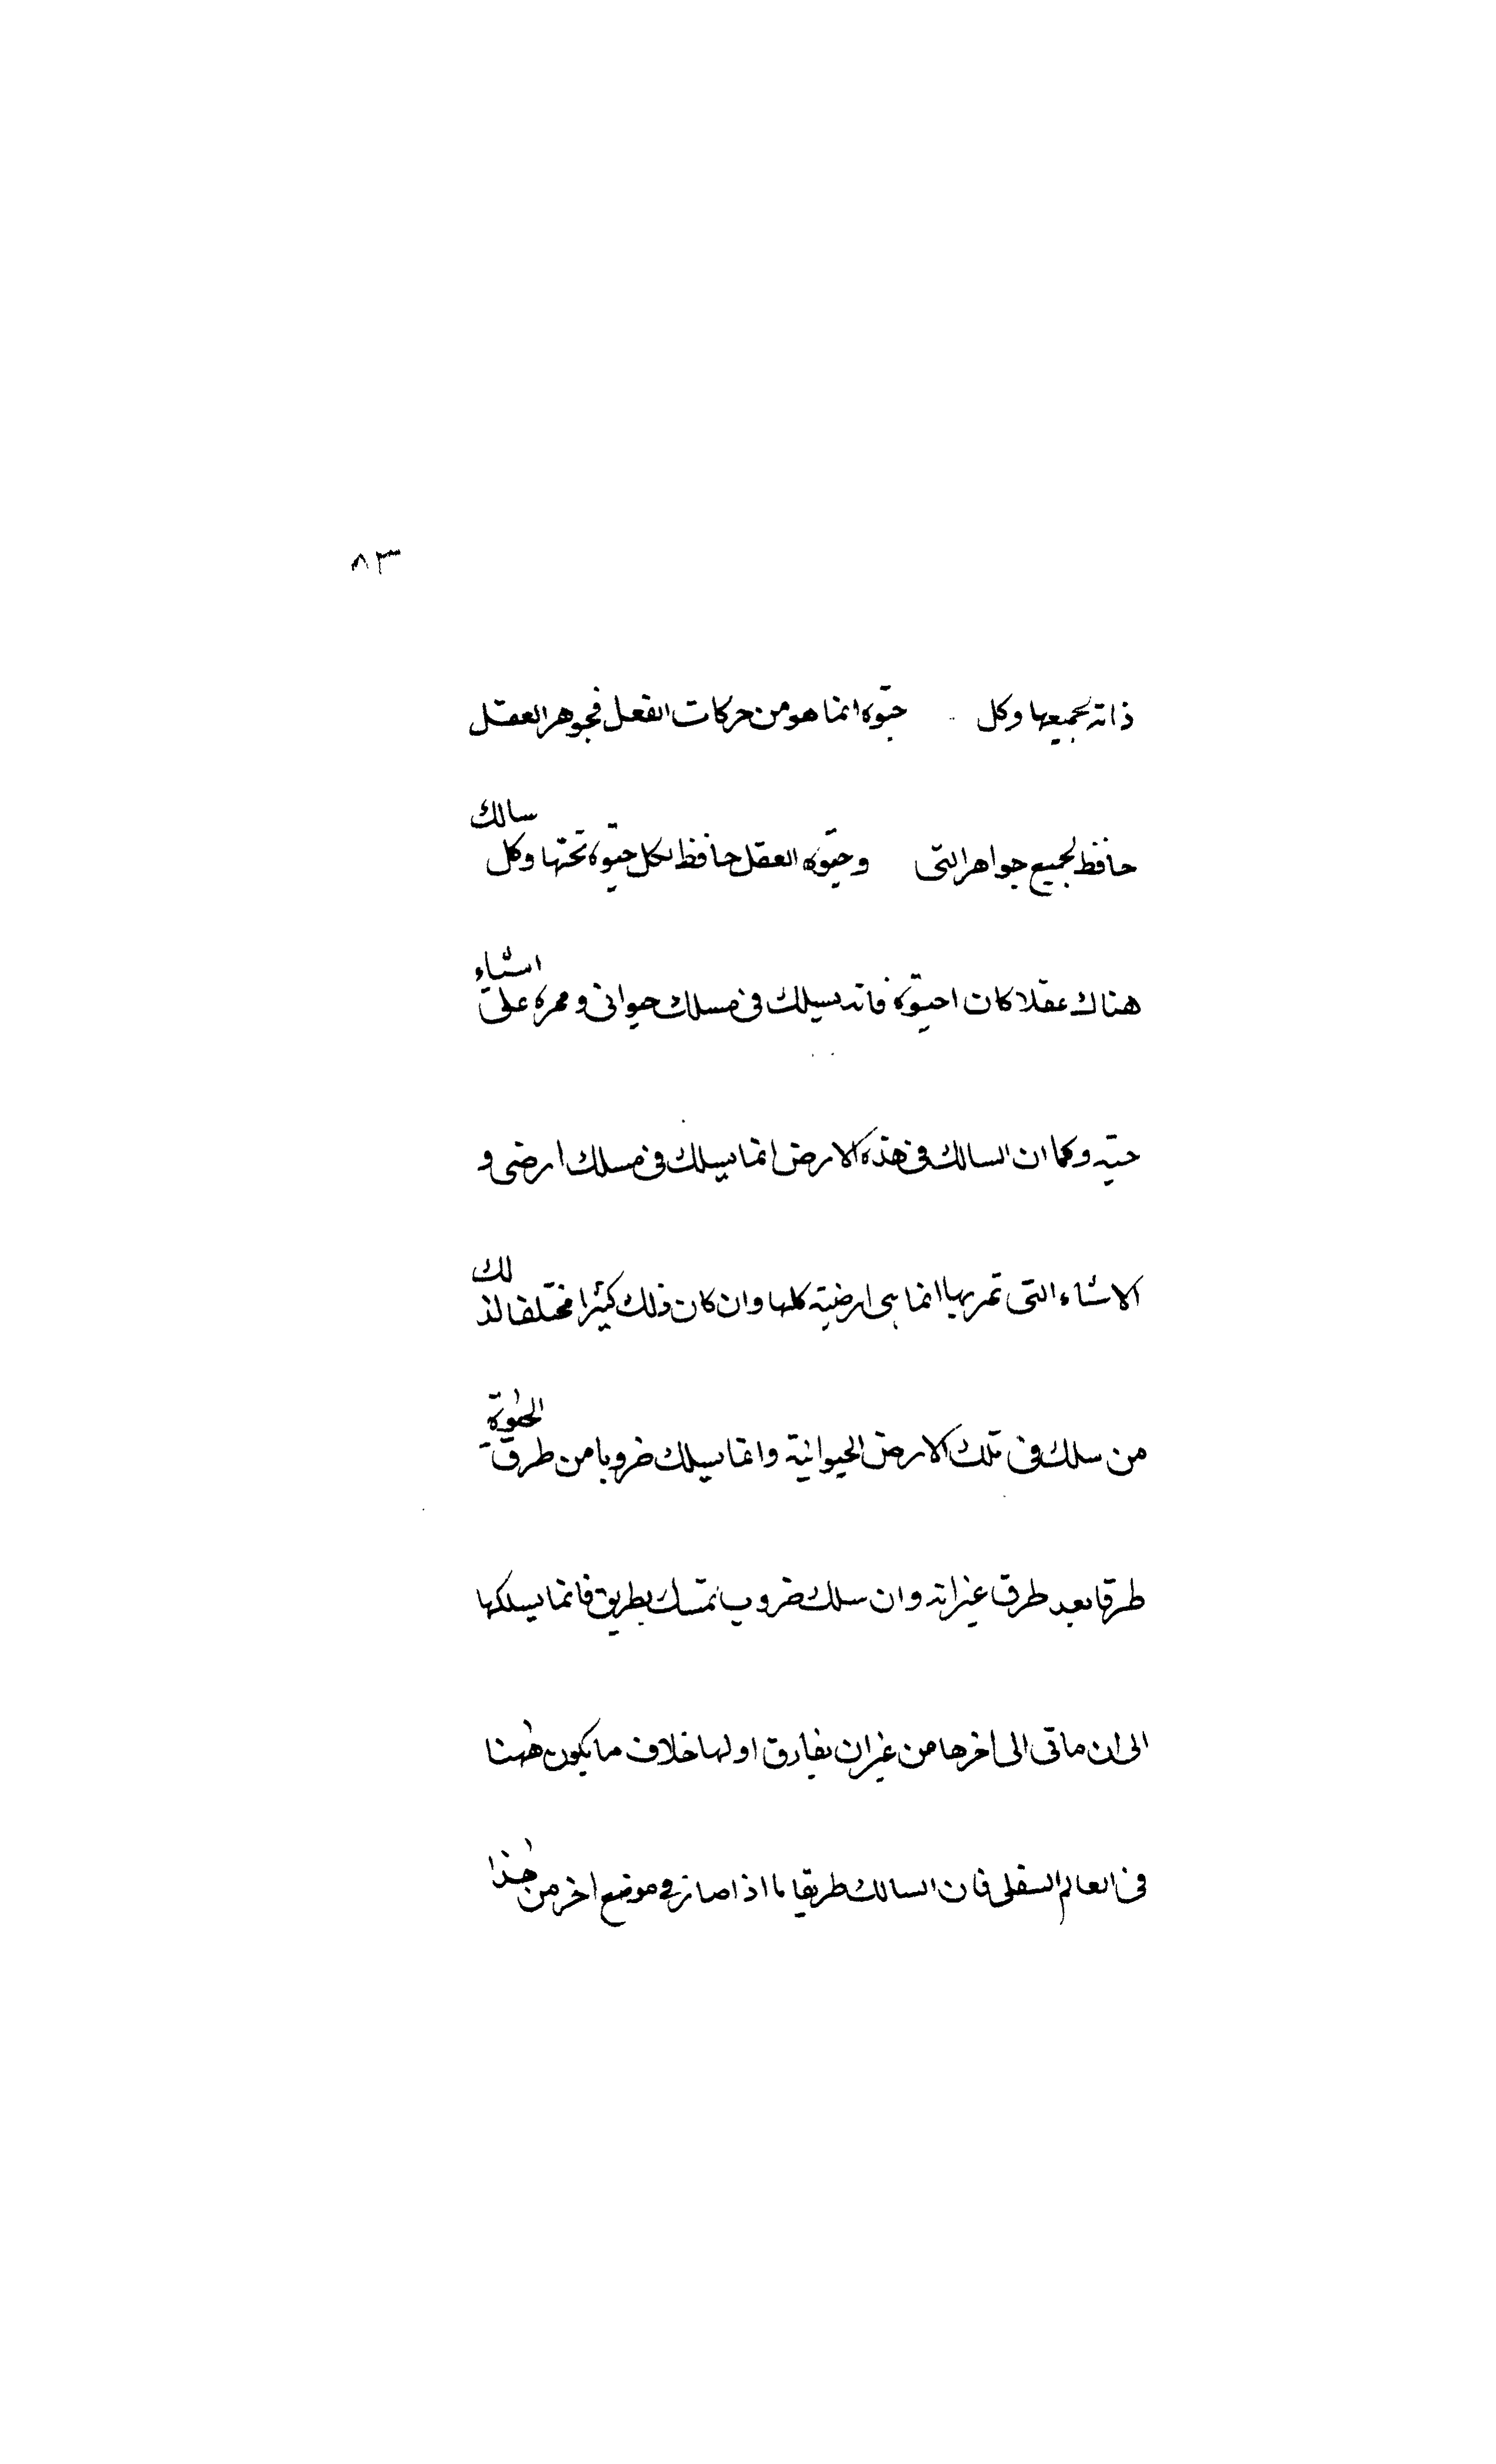 ٨٣
ذاته بجميعها وكل حيٰوة انما هو من حركات الفعل فجوهر العقل
حافظ لجميع جواهر التى وحيٰوة العقل حافظ لكل حيٰوة تحتها وكل سالك
هناك عقلا كان احيٰوة فانه يسلك فى مسلك حيوانى وممره على اشياء
حيّه وكما ان السالك فى هذه الارض انما يسلك فى مسلك ارضى و
الاشاء التى تمر بها انما هى ارضيّه كلها وان كان ذلك كثيرا مختلفا لذلك
من سلك فى تلك الارض الحيوانيّة وانما يسلك ضروبا من طرق الحيٰوة
طرقا بعد طرق غير انه وان سلك ضروب تمسك بطريق فانما يسلكها
الى ان ماتى الى اخرها من غير ان يفارق اولها خلاف ما يكون هٰهنا
فى العالم السفلى فان السالك طريقا ما اذا صار فى موضع اخر من هٰذا